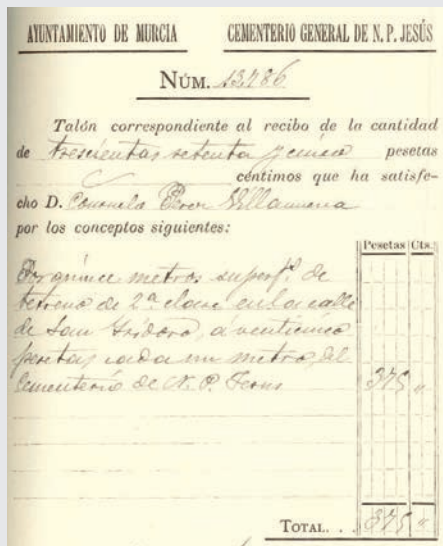 AYUNTAMIENTO DE MURCIA CEMENTERIO GENERAL DE N. P. JESÚS
NÚM. 13.786
Talón correspondiente al recibo de la cantidad
de trescientas setenta y cinco pesetas
céntimos que ha satisfe-
cho D. Consuelo Perez Villanueva
por los conceptos siguientes:
Pesetas Cts.
Por quince metros superf.s de
terreno de 2ª clase en la calle
de San Isidoro, a veinticinco
pesetas cada un metro, del
Cementerio de N. P. Jesus 375 "
TOTAL. . . 375 "